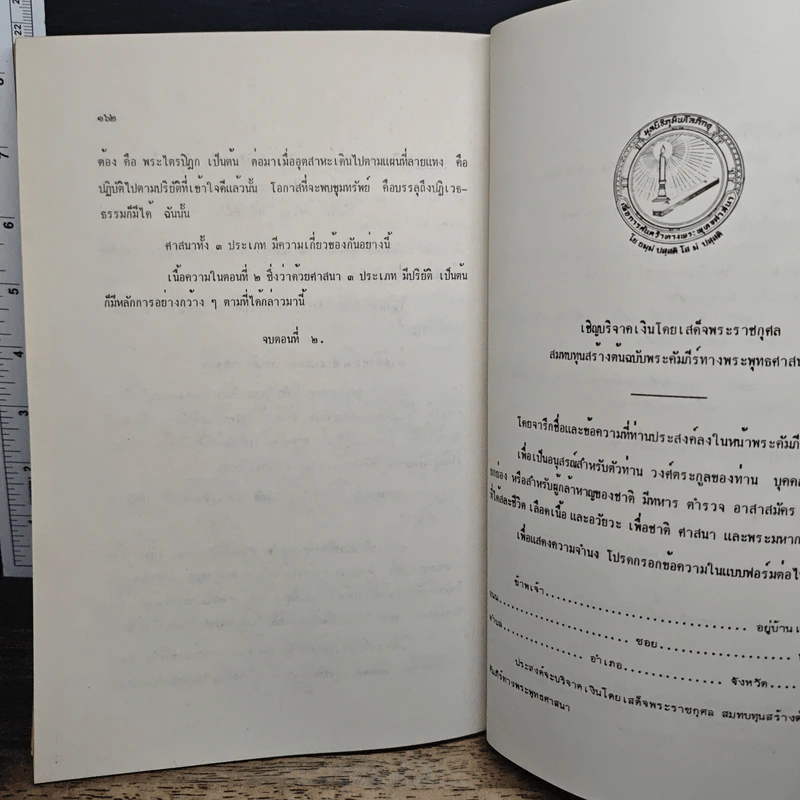 ๑๖๒
ต้อง คือ พระไตรปิฎก เป็นต้น ต่อมาเมื่ออุตสาหะเดินไปตามแผนที่ลายแทง คือ
ปฏิบัติไปตามปริยัติที่เข้าใจดีแล้วนั้น โอกาสที่จะพบขุมทรัพย์ คือบรรลุถึงปฏิเวธ-
ธรรมก็มีได้ ฉันนั้น
ศาสนาทั้ง ๓ ประเภท มีความเกี่ยวข้องกันอย่างนี้
เนื้อความในตอนที่ ๒ ซึ่งว่าด้วยศาสนา ๓ ประเภท มีปริยัติ เป็นต้น
ก็มีหลักการอย่างกว้าง ๆ ตามที่ได้กล่าวมานี้
จบตอนที่ ๒.
มูลนิธิภูมิพโลภิกขุ
เพื่อการค้นคว้าทางพระพุทธศาสนา
โย ธมฺมํ ปสฺสติ โส มํ ปสฺสติ
เชิญบริจาคเงินโดยเสด็จพระราชกุศล
สมทบทุนสร้างต้นฉบับพระคัมภีร์ทางพระพุทธศาสน
โดยจารึกชื่อและข้อความที่ท่านประสงค์ลงในหน้าพระคัมภีร
เพื่อเป็นอนุสรณ์สำหรับตัวท่าน วงศ์ตระกูลของท่าน บุคค
ยกย่อง หรือสำหรับผู้กล้าหาญของชาติ มีทหาร ตำรวจ อาสาสมัคร
ที่ได้สละชีวิต เลือดเนื้อ และอวัยวะ เพื่อชาติ ศาสนา และพระมหาก
เพื่อแสดงความจำนง โปรดกรอกข้อความในแบบฟอร์มต่อไ
ข้าพเจ้า................................ อยู่บ้านเ
ถนน...................... ซอย....................
ตำบล................ อำเภอ................ จังหวัด........
ประสงค์จะบริจาคเงินโดยเสด็จพระราชกุศล สมทบทุนสร้างต้
คัมภีร์ทางพระพุทธศาสนา